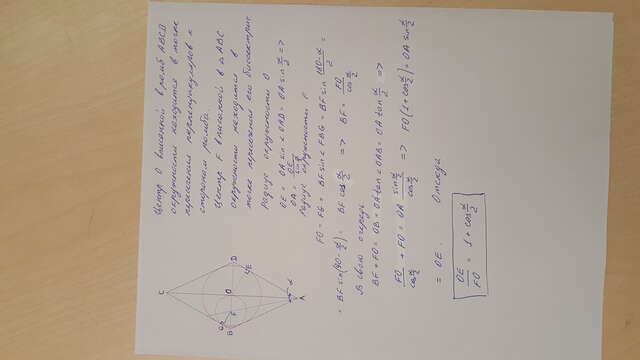 C
G
B
F
O
D
E
A
α
Центр O вписанной в ромб ABCD
окружности находится в точке
пересечения перпендикуляров к
сторонам ромба.
Центр F вписанной в △ ABC
окружности находится в
точке пересечения его биссектрис
Радиус окружности O
OE = OA sin ∠ OAD = OA sin α/2 =>
OA = OE / sin α/2
Радиус окружности F
FO = FG = BF sin ∠ FBG = BF sin (180-α)/2 =
= BF sin(90 - α/2) = BF cos α/2 => BF = FO / cos α/2
В свою очередь
BF + FO = OB = OA tan ∠ OAB = OA tan α/2 =>
FO / cos α/2 + FO = OA sin α/2 / cos α/2 => FO(1 + cos α/2) = OA sin α/2
= OE. Отсюда
OE / FO = 1 + cos α/2